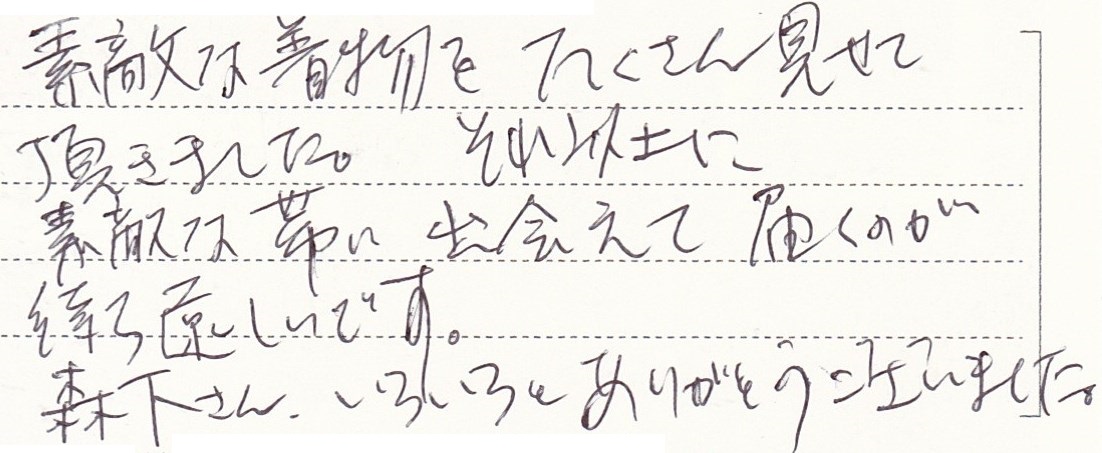 素敵な着物を たくさん見せて
頂きました。 それ以上に
素敵な帯に 出会えて 届くのが
待ち遠しいです。
森下さん、いろいろとありがとうございました。